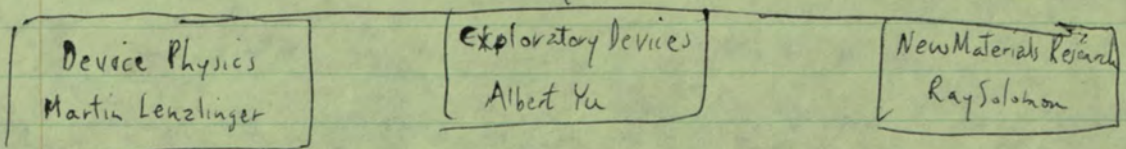 Device Physics
Martin Lenzlinger
Exploratory Devices
Albert Yu
New Materials Research
Ray Solomon